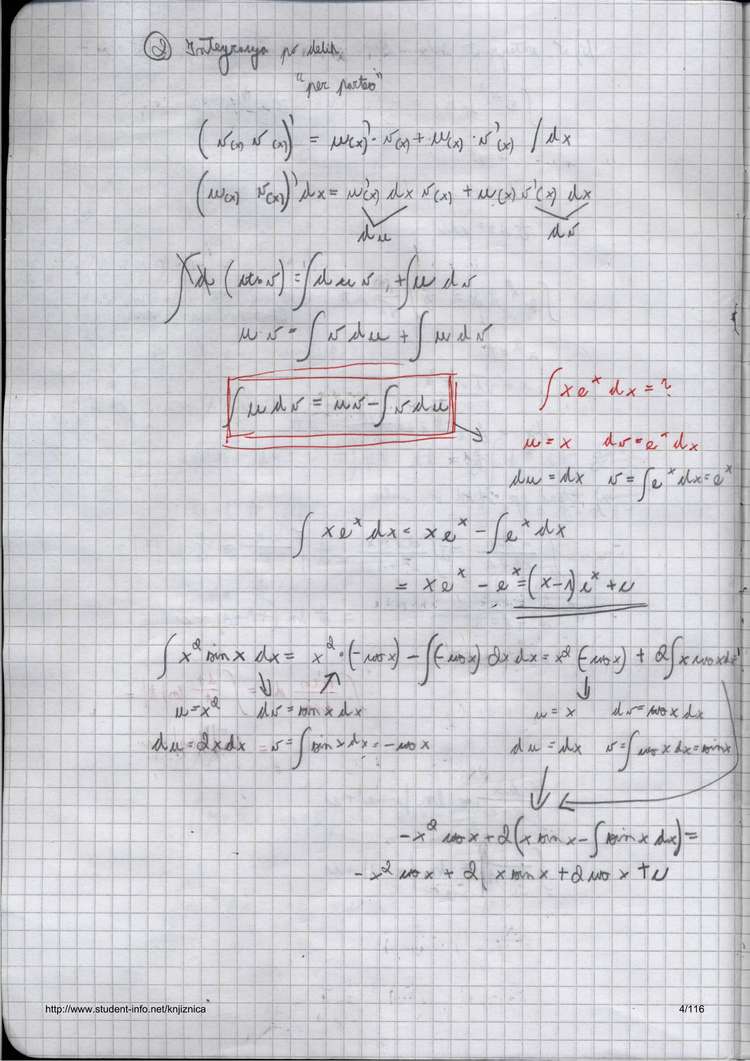 ② Integracija po delih
"per partes"
(v(x) v(x))' = u(x)' · v(x) + u(x) · v'(x) / dx
(u(x) v(x))' dx = u'(x) dx v(x) + u(x) v'(x) dx
du dv
∫ d (u·v) = ∫ du v + ∫ u dv
u v = ∫ v du + ∫ u dv
∫ u dv = uv - ∫ v du
∫ x e^x dx = ?
u = x dv = e^x dx
du = dx v = ∫ e^x dx = e^x
∫ x e^x dx = x e^x - ∫ e^x dx
= x e^x - e^x = (x-1) e^x + c
∫ x² sin x dx = x² · (-cos x) - ∫ (-cos x) 2x dx = x² (-cos x) + 2 ∫ x cos x dx
u = x² dv = sin x dx u = x dv = cos x dx
du = 2x dx v = ∫ sin x dx = -cos x du = dx v = ∫ cos x dx = sin x
-x² cos x + 2 (x sin x - ∫ sin x dx) =
-x² cos x + 2 ( x sin x + 2 cos x + c
http://www.student-info.net/knjiznica 4/116